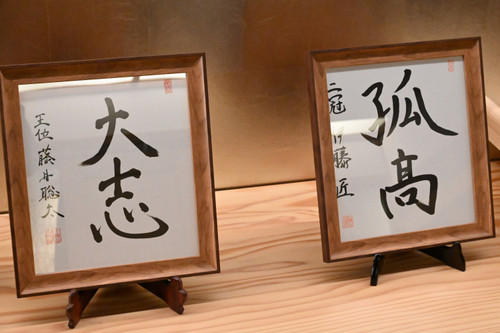 大志
王位 藤井聡太
孤高
二冠 伊藤匠